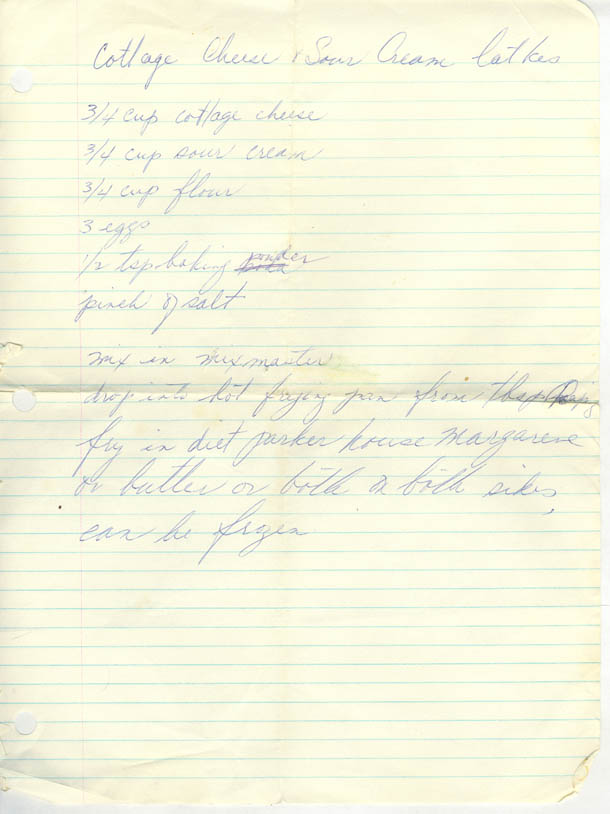 Cottage Cheese & Sour Cream latkes
3/4 cup cottage cheese
3/4 cup sour cream
3/4 cup flour
3 eggs
1/2 tsp baking powder
pinch of salt
mix in mixmaster
drop into hot frying pan from tbsp
fry in diet parker house margarine
or butter or both on both sides,
can be frozen